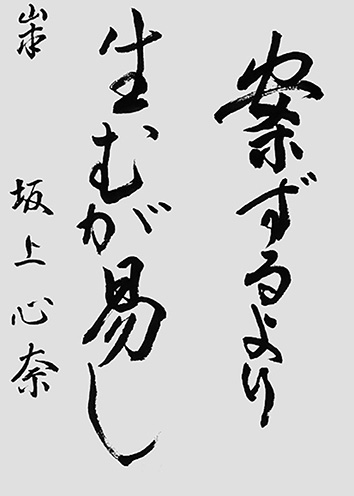 案ずるより
生むが易し
坂上心奈